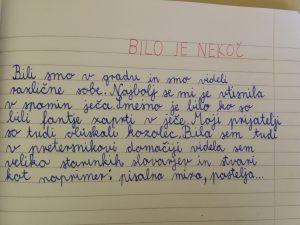 BILO JE NEKOČ
Bili smo v gradu in smo videli
različne sobe. Najbolj se mi je vtisnila
v spomin ječa. Smešno je bilo ko so
bili fantje zaprti v ječe. Moji prijatelji
so tudi obiskali kozolec. Bila sem tudi
v pretersnikovi domačiji videla sem
veliko starinkih slovarjev in stvari
kot naprimer: pisalna miza, postelja...